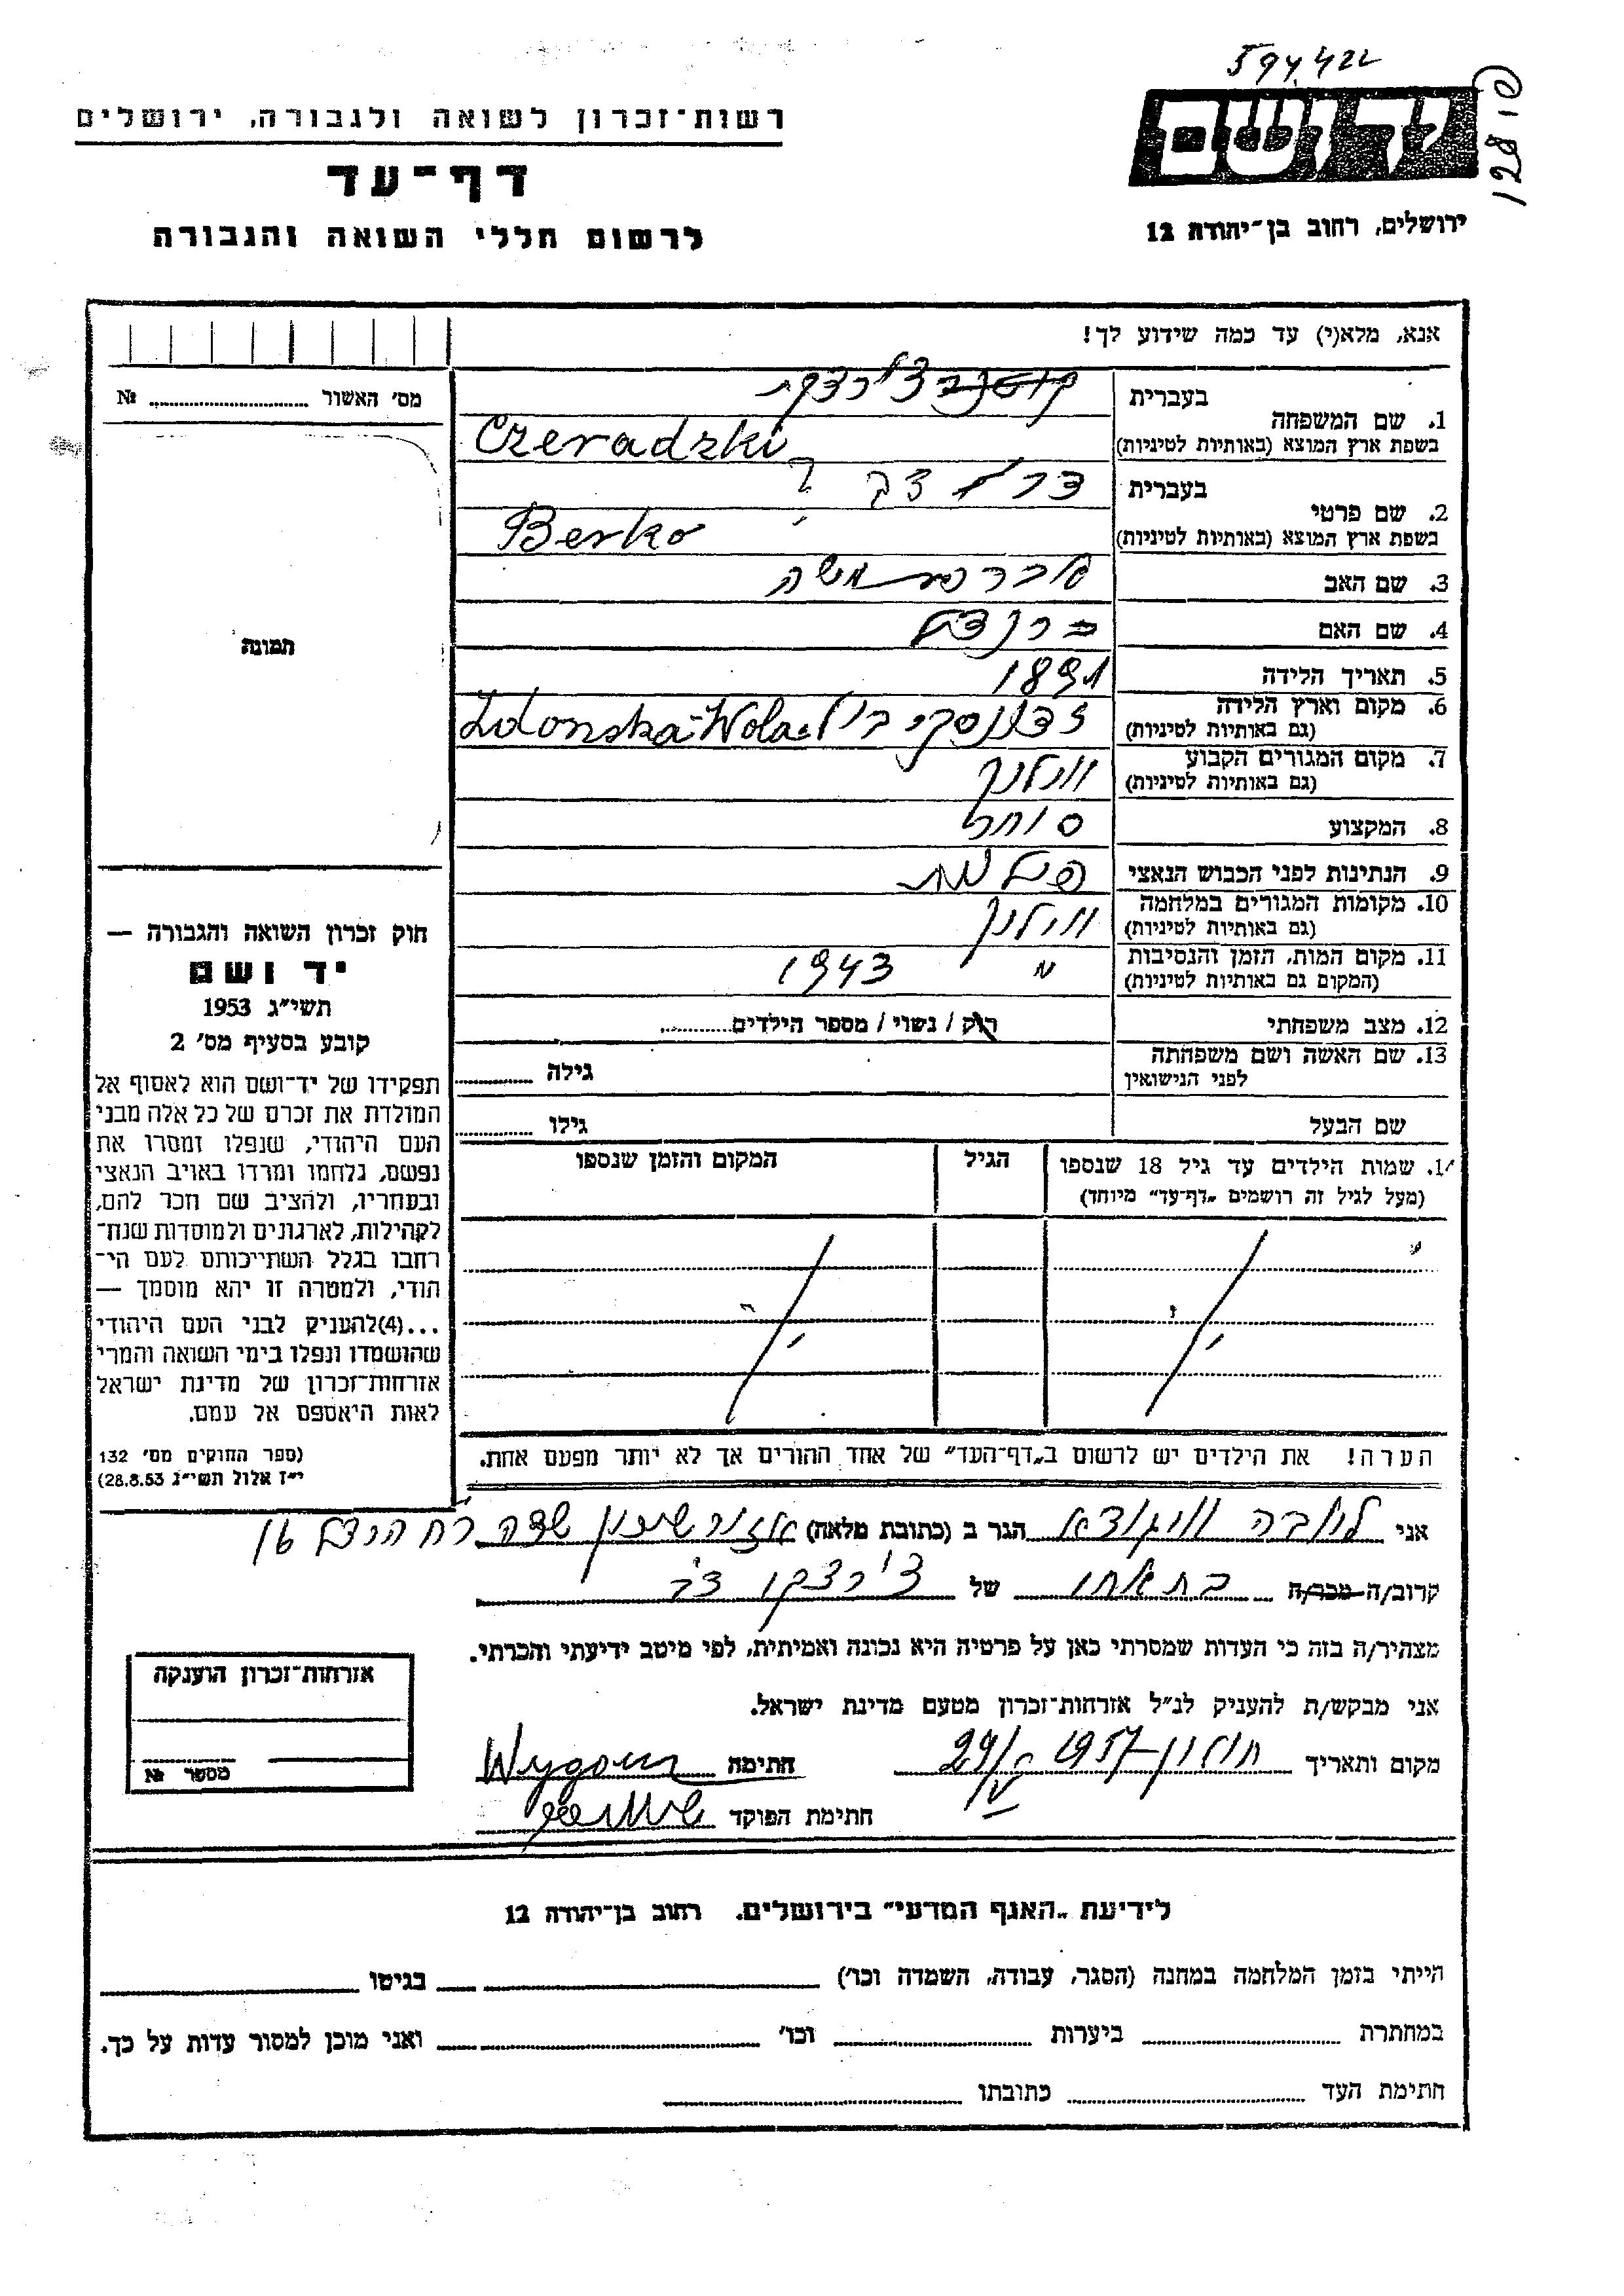 594,422
12810
יד ושם
ירושלים, רחוב בן־יהודה 12
רשות־זכרון לשואה ולגבורה, ירושלים
דף־עד
לרשום חללי השואה והגבורה
אנא, מלא(י) עד כמה שידוע לך!
1. שם המשפחה
בעברית
בשפת ארץ המוצא (באותיות לטיניות)
Czeradzki
2. שם פרטי
בעברית
בשפת ארץ המוצא (באותיות לטיניות)
Berko
3. שם האב
משה
4. שם האם
5. תאריך הלידה
1891
6. מקום וארץ הלידה
(גם באותיות לטיניות)
Zdonska-Wola
7. מקום המגורים הקבוע
(גם באותיות לטיניות)
ווילנך
8. המקצוע
סוחר
9. הנתינות לפני הכבוש הנאצי
10. מקומות המגורים במלחמה
(גם באותיות לטיניות)
ווילנך
11. מקום המות, הזמן והנסיבות
(המקום גם באותיות לטיניות)
1943
12. מצב משפחתי
רוק / נשוי / מספר הילדים
13. שם האשה ושם משפחתה
לפני הנישואין
גילה
שם הבעל
גילו
14. שמות הילדים עד גיל 18 שנספו
(מעל לגיל זה רושמים „דף־עד״ מיוחד)
הגיל
המקום והזמן שנספו
הערה! את הילדים יש לרשום ב„דף־העד״ של אחד ההורים אך לא יותר מפעם אחת.
מס' האשור № 
תמונה
חוק זכרון השואה והגבורה —
יד ושם
תשי״ג 1953
קובע בסעיף מס' 2
תפקידו של יד־ושם הוא לאסוף אל
המולדת את זכרם של כל אלה מבני
העם היהודי, שנפלו ומסרו את
נפשם, נלחמו ומרדו באויב הנאצי
ובעחריו, ולהציב שם וזכר להם,
לקהילות, לארגונים ולמוסדות שנח־
רחבו בגלל השתייכותם לעם הי־
הודי, ולמטרה זו יהא מוסמך —
...(4)להעניק לבני העם היהודי
שהושמדו ונפלו בימי השואה והמרי
אזרחות־זכרון של מדינת ישראל
לאות היאספם אל עמם.
(ספר החוקים מס' 132
י״ז אלול תשי״ג 28.8.53)
אני ליובה הגר ב (כתובת מלאה) שדה רח הרצל
קרוב/ה מכר/ה בת אחו של
מצהיר/ה בזה כי העדות שמסרתי כאן על פרטיה היא נכונה ואמיתית, לפי מיטב ידיעתי והכרתי.
אני מבקש/ת להעניק לנ״ל אזרחות־זכרון מטעם מדינת ישראל.
מקום ותאריך חולון 1957 29/IV חתימה
חתימת הפוקד
אזרחות־זכרון הוענקה
מספר №
לידיעת „האגף המדעי״ בירושלים, רחוב בן־יהודה 12
הייתי בזמן המלחמה במחנה (הסגר, עבודה, השמדה וכו') בגיטו
במחתרת ביערות וכו' ואני מוכן למסור עדות על כך.
חתימת העד כתובתו